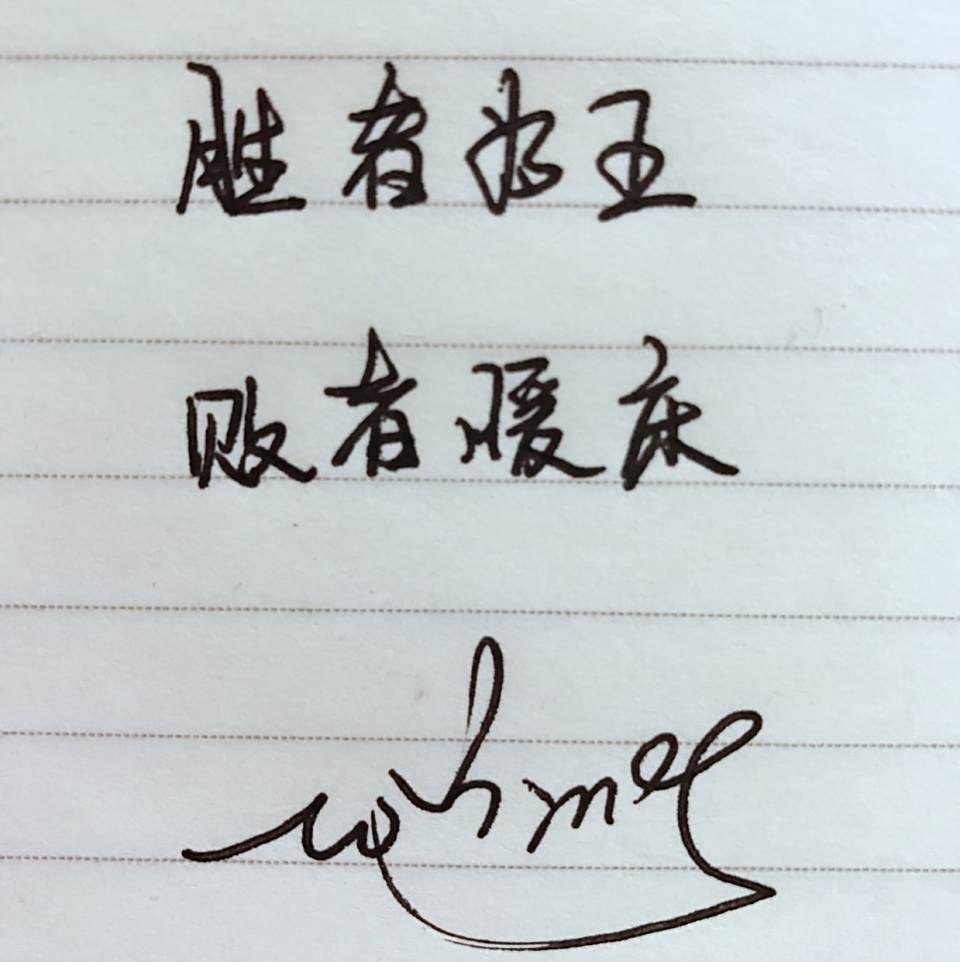 胜者为王
败者暖床